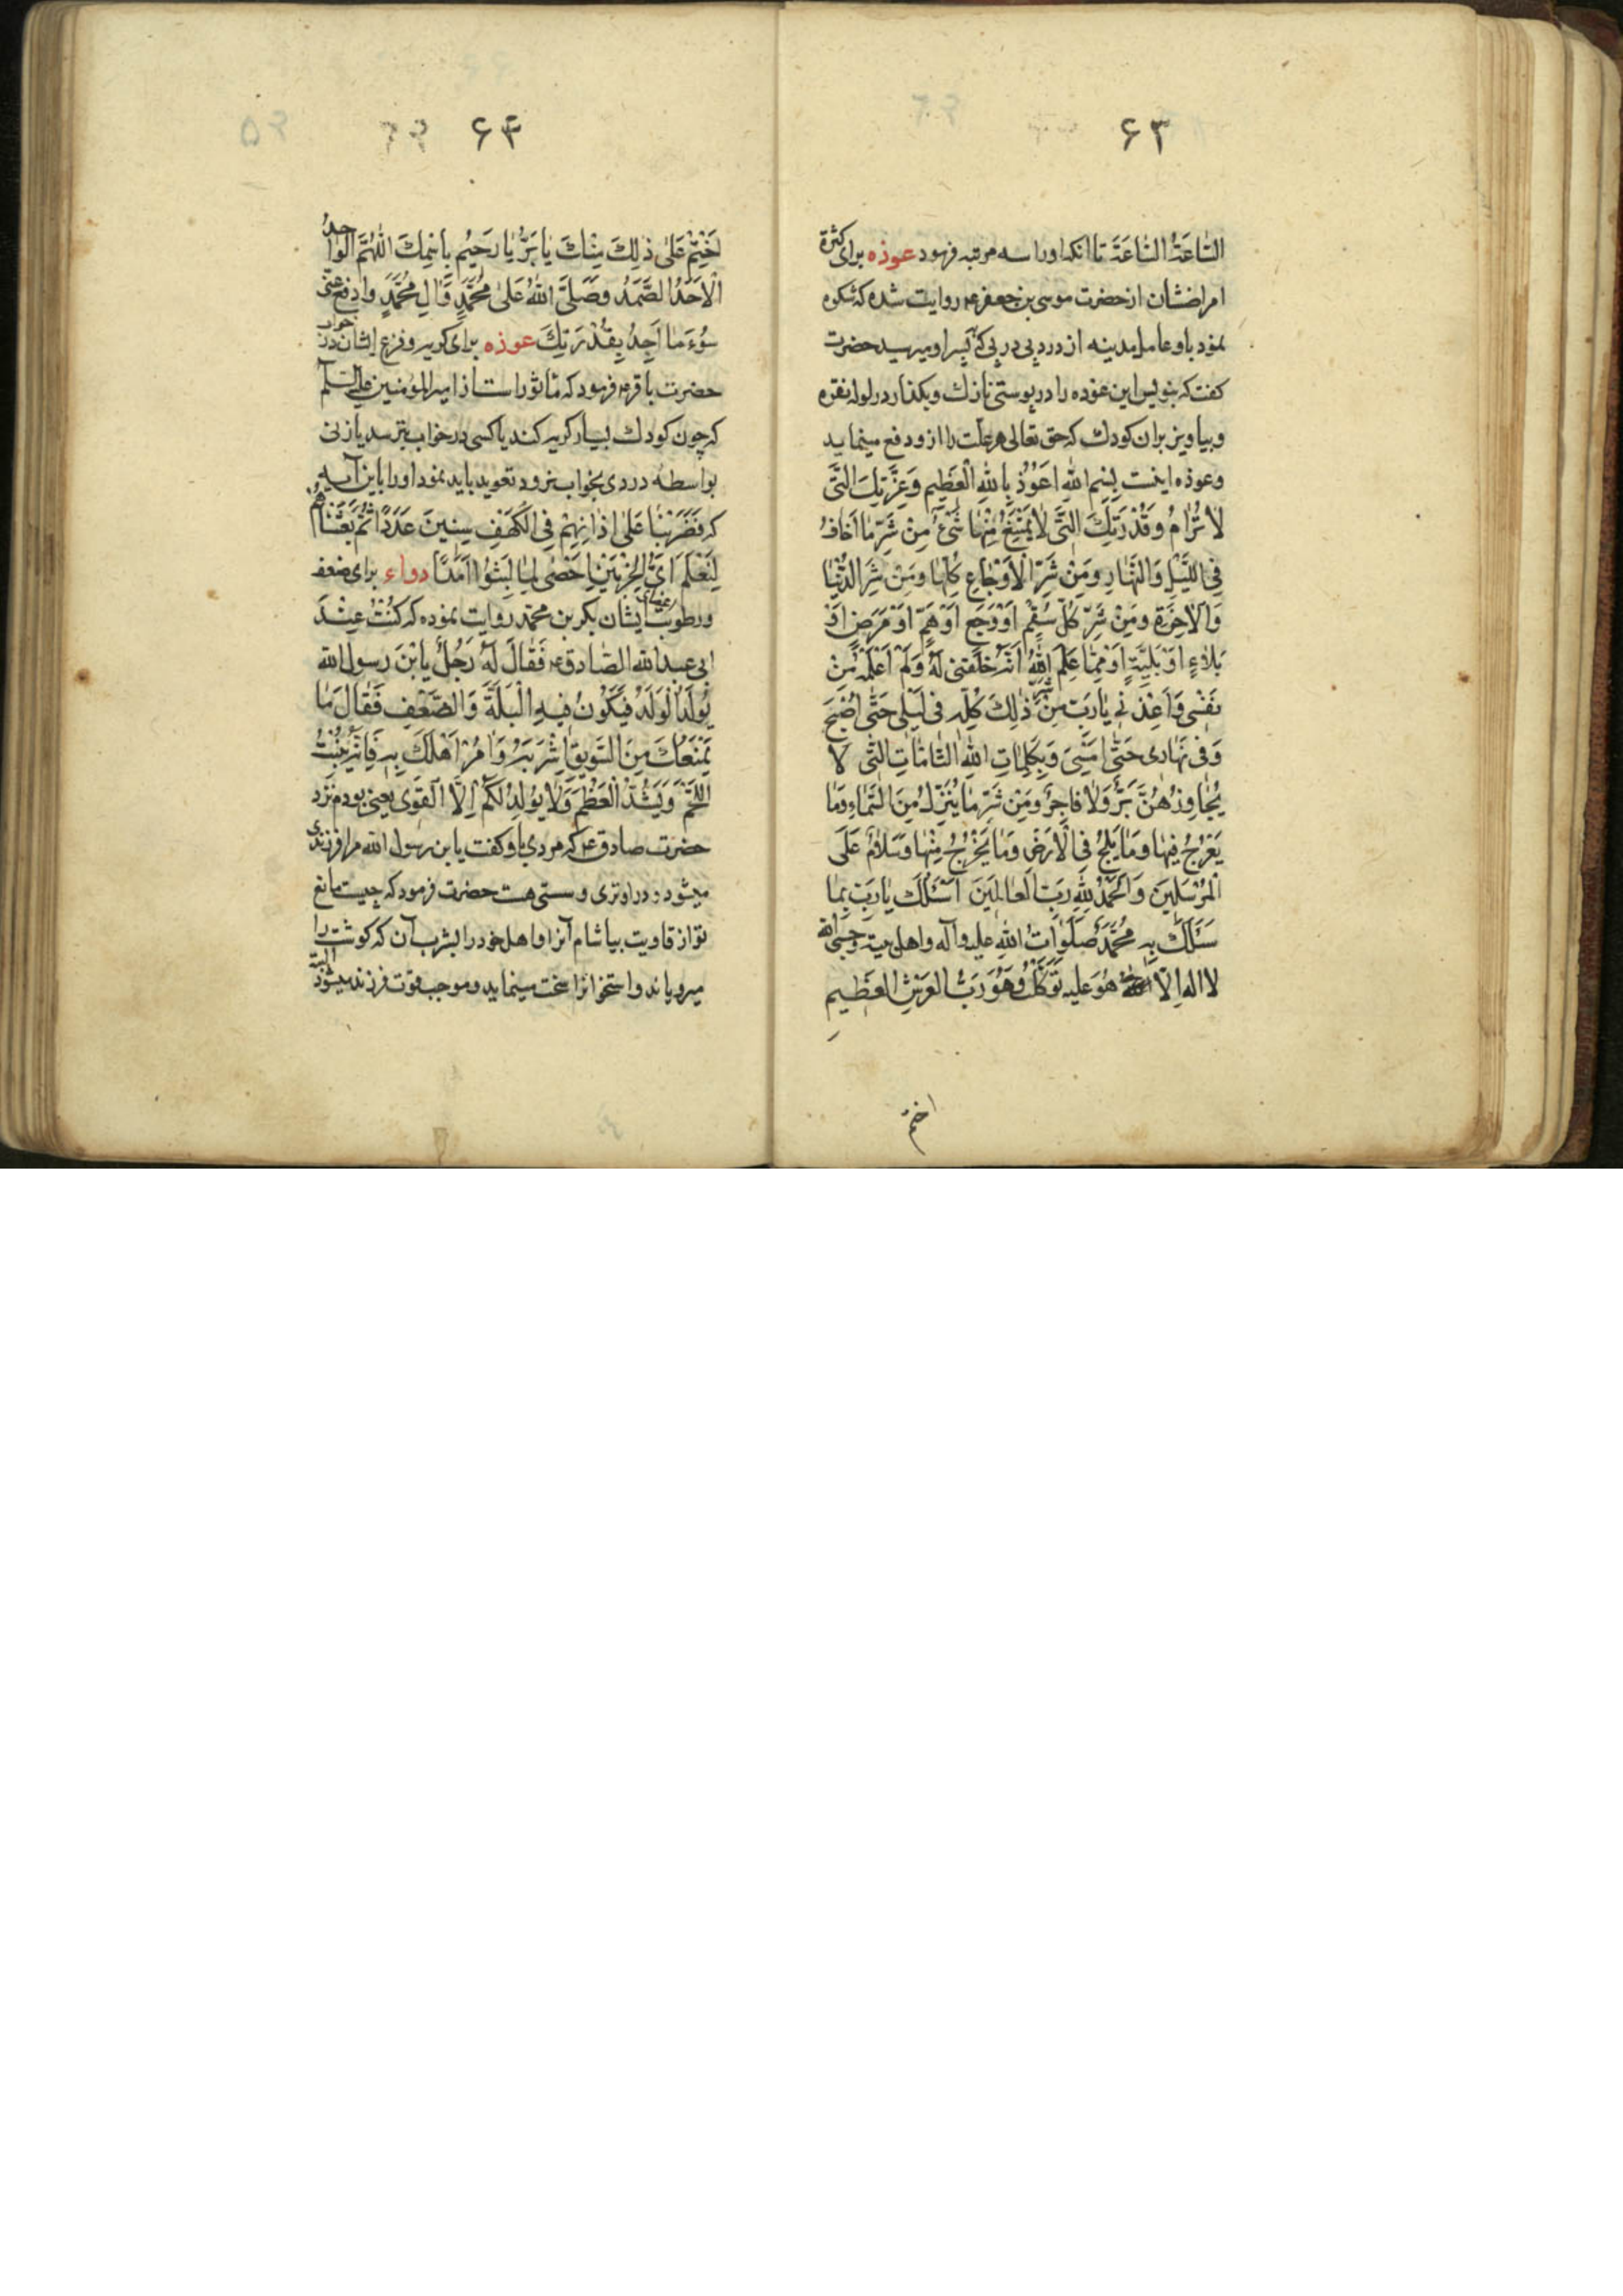 ۶۳
السَّاعَةَ السَّاعَةَ تا انکه او را سه مرتبه فرمود عوذه برای کثرة
امراضشان از حضرت موسی بن جعفر ع روایت شده که شکوه
نمود باو عامل مدینه از درد پی در پی که بپسر او میرسید حضرت
کفت که بنویس این عوذه را در پوستی نازک و بکذار در لوله نقره
و بیاویز بران کودک که حق تعالی هر علت را ازو دفع مینماید
و عوذه اینست بِسْمِ اللهِ اَعُوذُ بِاللهِ الْعَظِیمِ وَعِزَّتِكَ الَّتی
لا تُرامُ وَقُدْرَتِكَ الَّتی لا یَمْتَنِعُ مِنْها شَیْءٌ مِنْ شَرِّ ما اَخافُ
فِی اللَّیْلِ وَالنَّهارِ وَمِنْ شَرِّ الْاَوْجاعِ کُلِّها وَمِنْ شَرِّ الدُّنْیا
وَالْاخِرَةِ وَمِنْ شَرِّ کُلِّ سُقْمٍ اَوْ وَجَعٍ اَوْ هَمٍّ اَوْ مَرَضٍ اَوْ
بَلاءٍ اَوْ بَلِیَّةٍ اَوْ مِمّا عَلِمَ اللهُ اَنَّهُ خَلَقَنی لَهُ وَلَمْ اَعْلَمْهُ مِنْ
نَفْسی وَاَعِذْنی یا رَبِّ مِنْ شَرِّ ذٰلِكَ کُلِّهِ فی لَیْلی حَتّٰی اُصْبِحَ
وَفی نَهاری حَتّٰی اُمْسِیَ وَبِکَلِماتِ اللهِ التّامّاتِ الَّتی لا
یُجاوِزُهُنَّ بَرٌّ وَلا فاجِرٌ وَمِنْ شَرِّ ما یُنْزَلُ مِنَ السَّماءِ وَما
یَعْرُجُ فیها وَما یَلِجُ فِی الْاَرْضِ وَما یَخْرُجُ مِنْها وَسَلامٌ عَلَی
الْمُرْسَلینَ وَالْحَمْدُ لِلّٰهِ رَبِّ الْعالَمینَ اَسْئَلُكَ یا رَبِّ بِما
سَئَلَكَ بِهِ مُحَمَّدٌ صَلَواتُ اللهِ علیه وآله واهل بیته حَسْبِیَ الله
لا اله اِلّا هُوَ علیه تَوَکَّلْتُ وَهُوَ رَبُّ العَرْشِ العَظیمِ
اختم
۶۴
اِخْتِمْ عَلٰی ذٰلِكَ مِنْكَ یا بَرُّ یا رَحیمُ بِاسْمِكَ اللّٰهُمَّ الْواحِدُ
الْاَحَدُ الصَّمَدُ وَصَلَّی اللهُ عَلٰی مُحَمَّدٍ وَّالِ مُحَمَّدٍ وَادْفَعْ عَنّی
سُوءَ ما اَجِدُ بِقُدْرَتِكَ عوذه برای کریه و فزع ایشان در خواب
حضرت باقر ع فرمود که ماثور است از امیر المؤمنین علیه السلام
که چون کودک بسیار کریه کند یا کسی در خواب بترسد یا زنی
بواسطه دردی بخواب نرود تعوید باید نمود او را باین آیه
که فَضَرَبْنا عَلٰی اذانِهِمْ فِی الْکَهْفِ سِنینَ عَدَدًا ثُمَّ بَعَثْناهُمْ
لِنَعْلَمَ اَیُّ الْحِزْبَیْنِ اَحْصٰی لِما لَبِثُوا اَمَدًا دواء برای ضعف
ورطوبت ایشان بکر بن محمد روایت نموده که کُنْتُ عِنْدَ
ابی عبد الله الصّادق ع فَقالَ لَهُ رَجُلٌ یا ابْنَ رسول الله
یُولَدُ الْوَلَدُ فَیَکُونُ فیهِ الْبَلَّةُ وَالضَّعْفُ فَقالَ ما
یَمْنَعُكَ مِنَ السَّویقِ اِشْرَبْهُ وَامُرْ اَهْلَكَ بِهِ فَاِنَّهُ یُنْبِتُ
اللَّحْمَ وَیَشُدُّ الْعَظْمَ وَلا یُولَدُ لَکُمْ اِلَّا الْقَوِیُّ یعنی بودم نزد
حضرت صادق ع که مردی باو کفت یا بن رسول الله مرا فرزندی
میشود و در او تری و سستی هست حضرت فرمود که چیست مانع
تو از قاویت بیاشام آنرا و اهل خود را بشرب آن که کوشت را
میرویاند و استخوانرا سخت مینماید و موجب قوت فرزند میشود البته